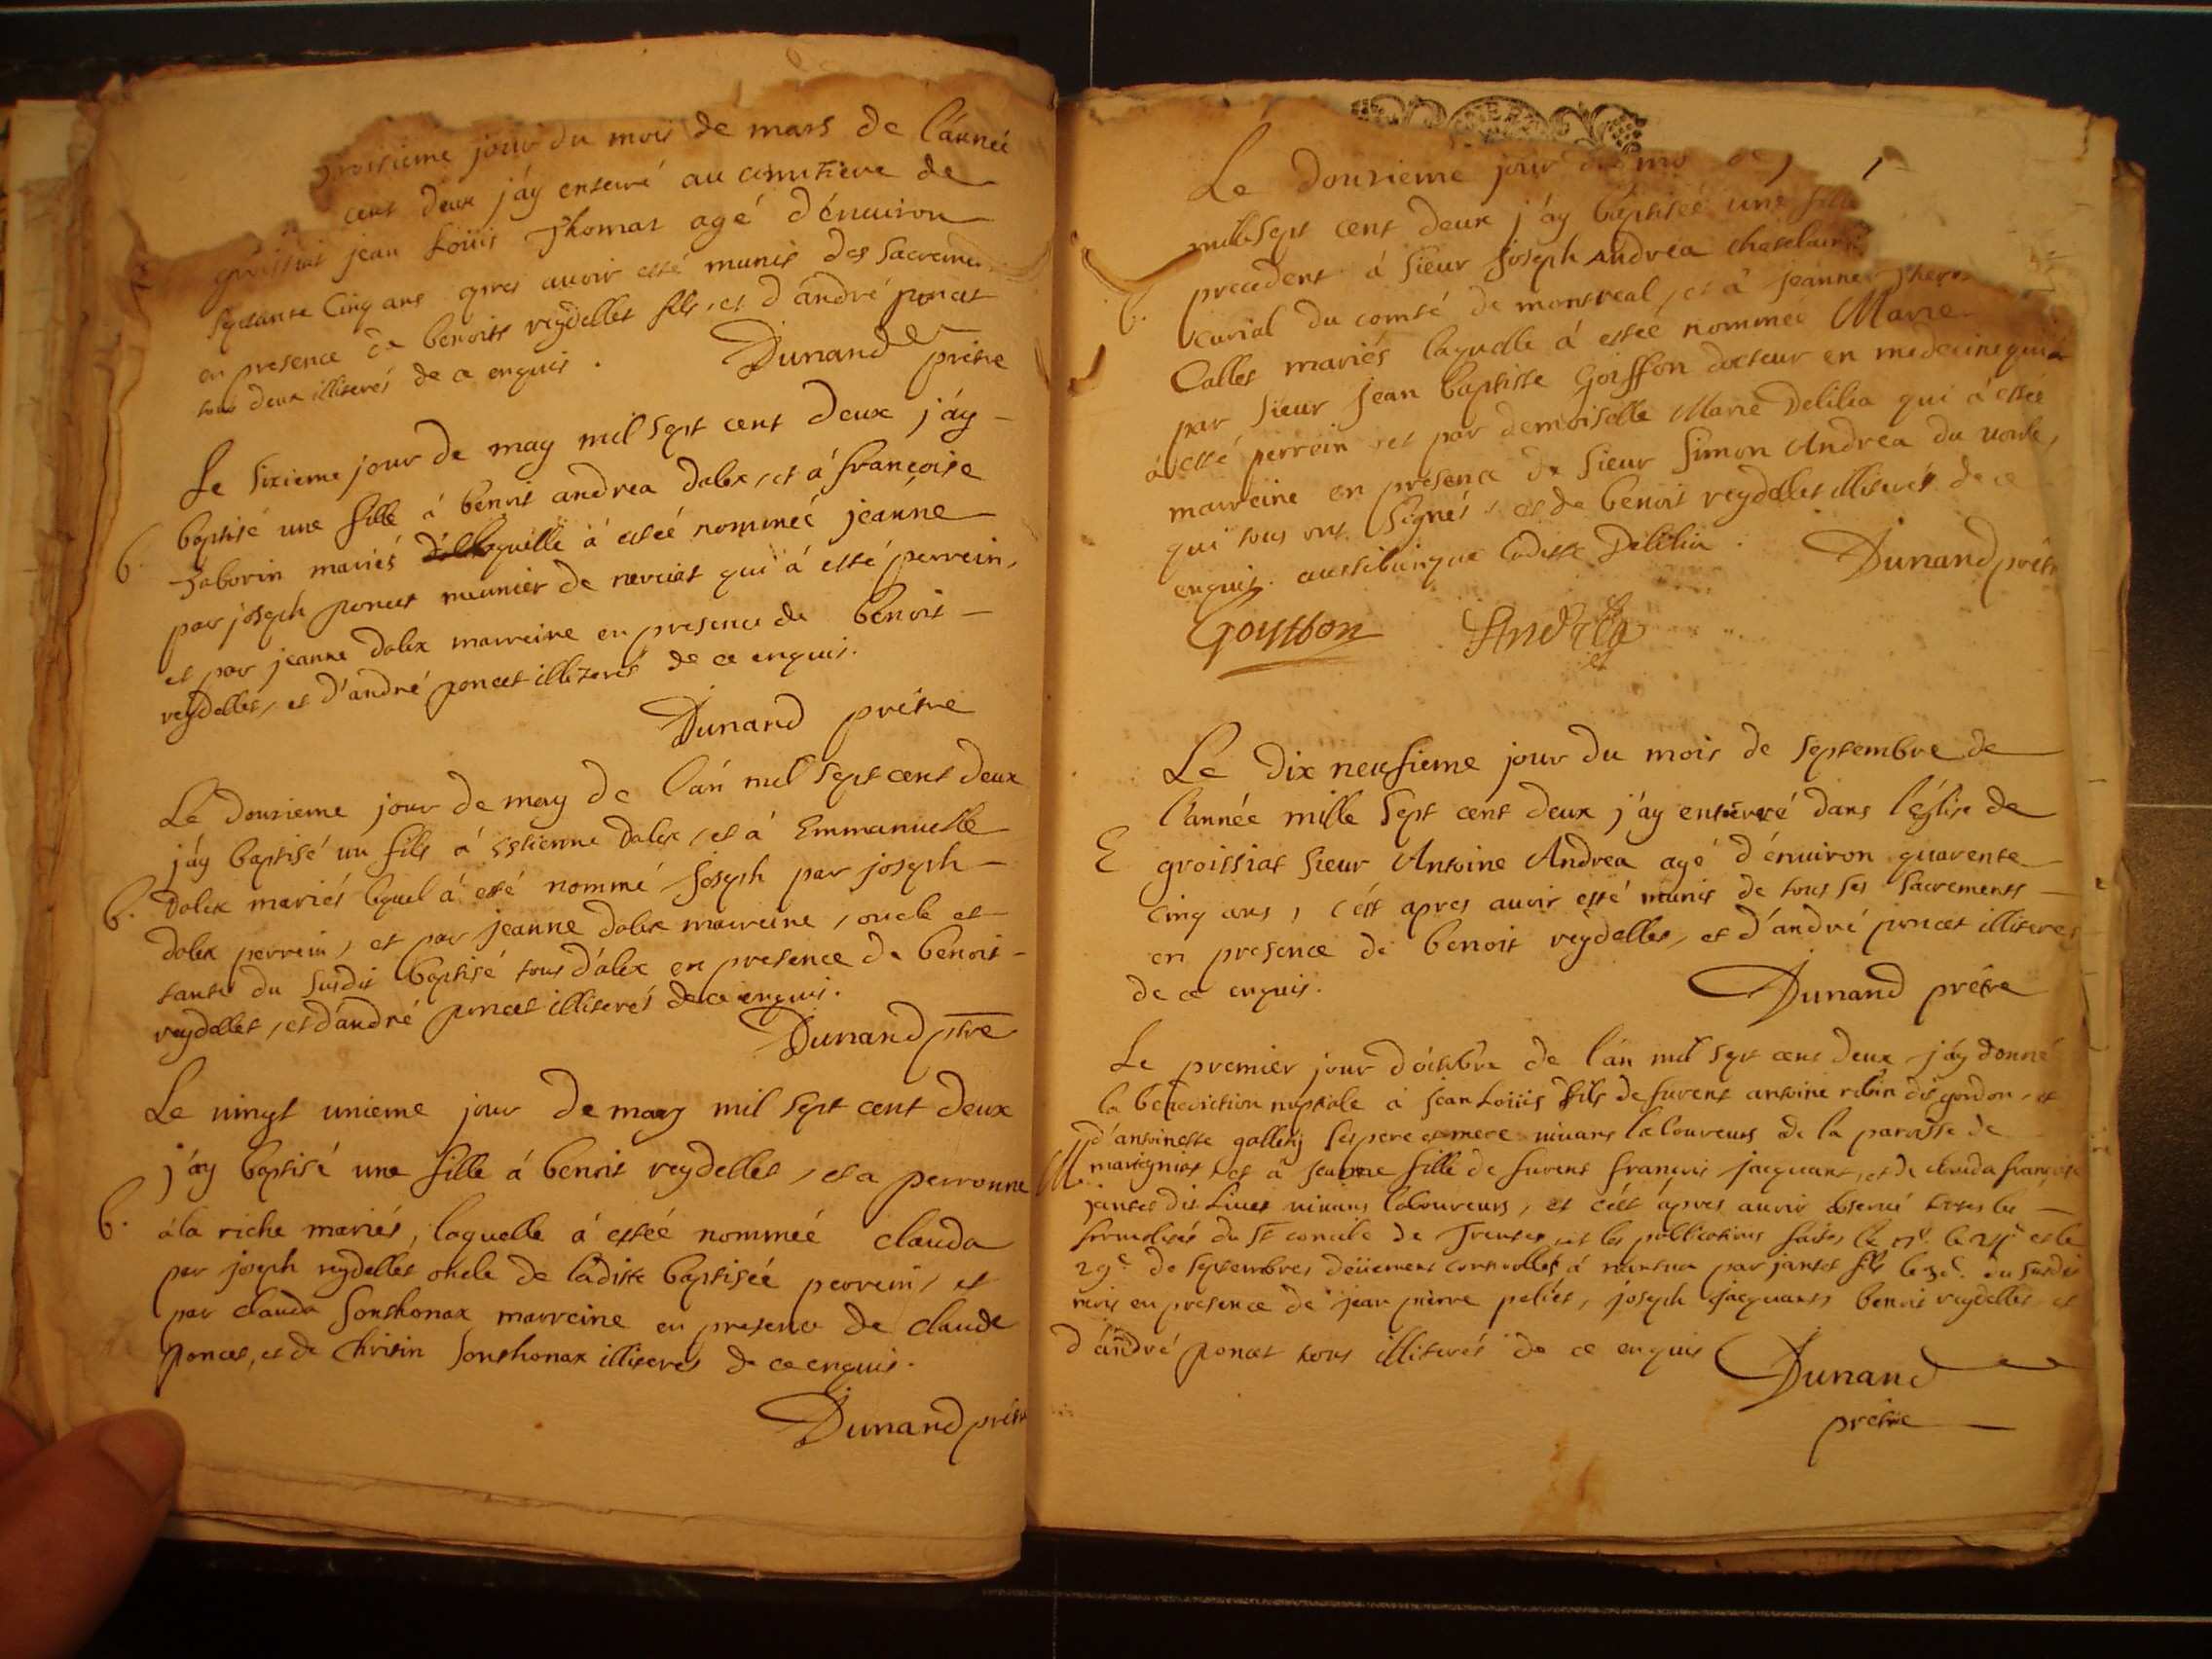 troisieme jour du mois de mars de l'année
cent deux j'áy enterré au cimitiere de
groissiat jean Loüis Thomas agé d'énuiron
septante Cinq ans apres auoir esté munis des Sacremen
en presence de benoist reydellet fils, et d'andré poncet
tous deux illiterés de ce enquis. Dunand prêtre
Le sixieme jour de may mil sept cent deux j'áy
b. baptisé une fille á benoit andrea dalex, et á françoise
Taborin mariés laquelle á estéé nomméé jeanne
par joseph poncet meunier de nerciat qui á esté perrein,
et par jeanne dalex marreine en presence de benoit
reydellet, et d'andré poncet illiterés de ce enquis.
Dunand prêtre
Le douzieme jour de may de l'án mil sept cent deux
j'áy baptisé un fils á estienne dalex, et á Emmanuelle
b. dalex mariés lequel á esté nommé joseph par joseph
dalex perrein, et par jeanne dalex marreine, oncle et
tante du susdit baptisé tous d'alex en presence de benoit
reydellet, et d'andré poncet illiterés de ce enquis.
Dunand ptre
Le vingt unieme jour de may mil sept cent deux
j'áy baptisé une fille á benoit reydellet, et a perronne
b. á la riche mariés, laquelle á estéé nomméé clauda
par joseph reydellet oncle de laditte baptiséé perrein, et
par clauda Sonthonax marreine en presence de claude
poncet, et de Christin Sonthonax illiterés de ce enquis.
Dunand prêtre
Le douzieme jour du
mil sept cent deux j'áy baptiséé une fille
precedent á sieur joseph Andréa chatelain
b. curial du comté de montreal, et á jeanne
Callet mariés laquelle á estéé nomméé Marie
par sieur jean baptiste Goiffon docteur en medecine qui
á esté perrein et par demoiselle Marie Delilia qui á estéé
marreine en présence de sieur simon Andrea du
qui tous ont signés, et de benoit reydellet illiterés de ce
enquis. aussibienque laditte Delilia. Dunand prêtre
Goyffon Andrea
Le dix neufieme jour du mois de septembre de
l'année mille sept cent deux j'áy enterré dans l'église de
E groissiat sieur Antoine Andrea agé d'énuiron quarente
cinq ans, c'ést apres auoir esté munis de tous ses sacrements
en presence de benoit reydellet, et d'andré poncet illiteres
de ce enquis. Dunand prêtre
Le premier jour d'octobre de l'án mil sept cent deux j'áy donné
la benediction nuptiale á jean Loüis fils de furent antoine robin dit gordon, et
M d'antoinette ses pere et mere viuans laboureurs de la paroisse de
martigniat et á fille de furent françois jacquant, et de clauda françoise
jantet dit viuans laboureurs, et c'ést ápres auoir obserué toutes les
formalités du St concile de Trente, et les publications faites le le et le
29e de septembre, deüement par jantet fils le du susdit
mois en presence de jean pierre jóseph jacquant, benoit reydellet et
d'ándré poncet tous illiterés de ce enquis Dunand
prêtre